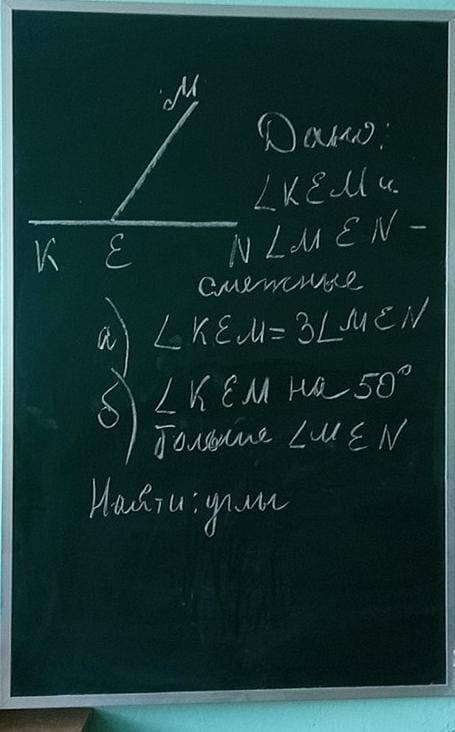 М
Дано:
∠KEM и
K E N ∠MEN –
смежные
а) ∠KEM = 3∠MEN
б) ∠KEM на 50°
больше ∠MEN
Найти: углы